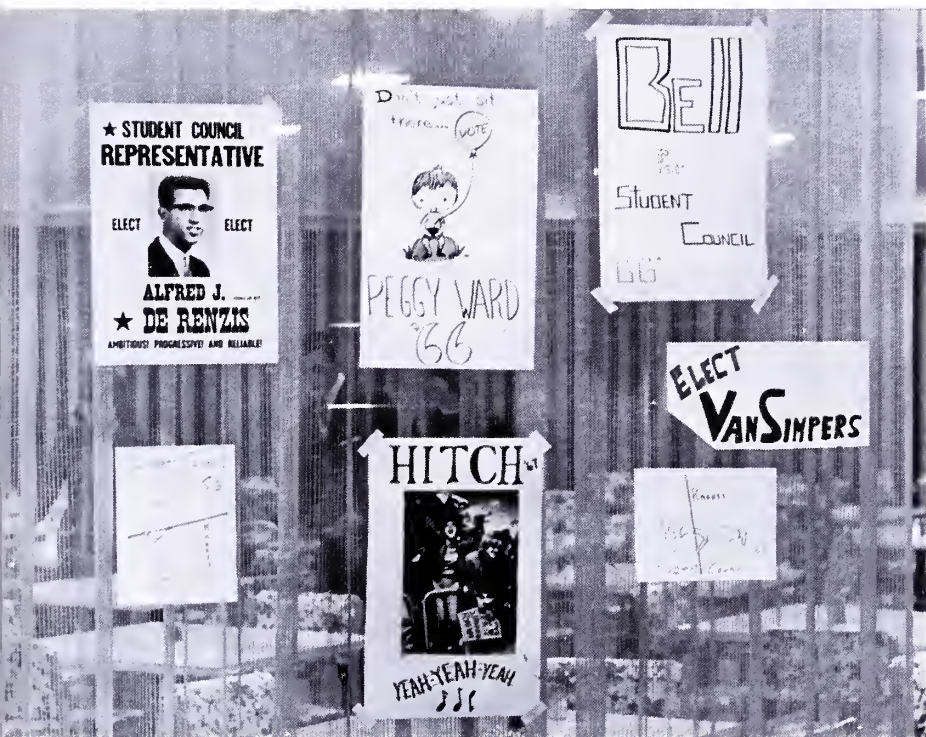 ★ STUDENT COUNCIL
REPRESENTATIVE
ELECT ELECT
ALFRED J.
★ DE RENZIS
AMBITIOUS! PROGRESSIVE! AND RELIABLE!
Don't just sit
there... VOTE
PEGGY WARD
'66
BEll
for
STUDENT
COUNCIL
66
ELECT
VANSIMPERS
HITCH '67
YEAH-YEAH-YEAH